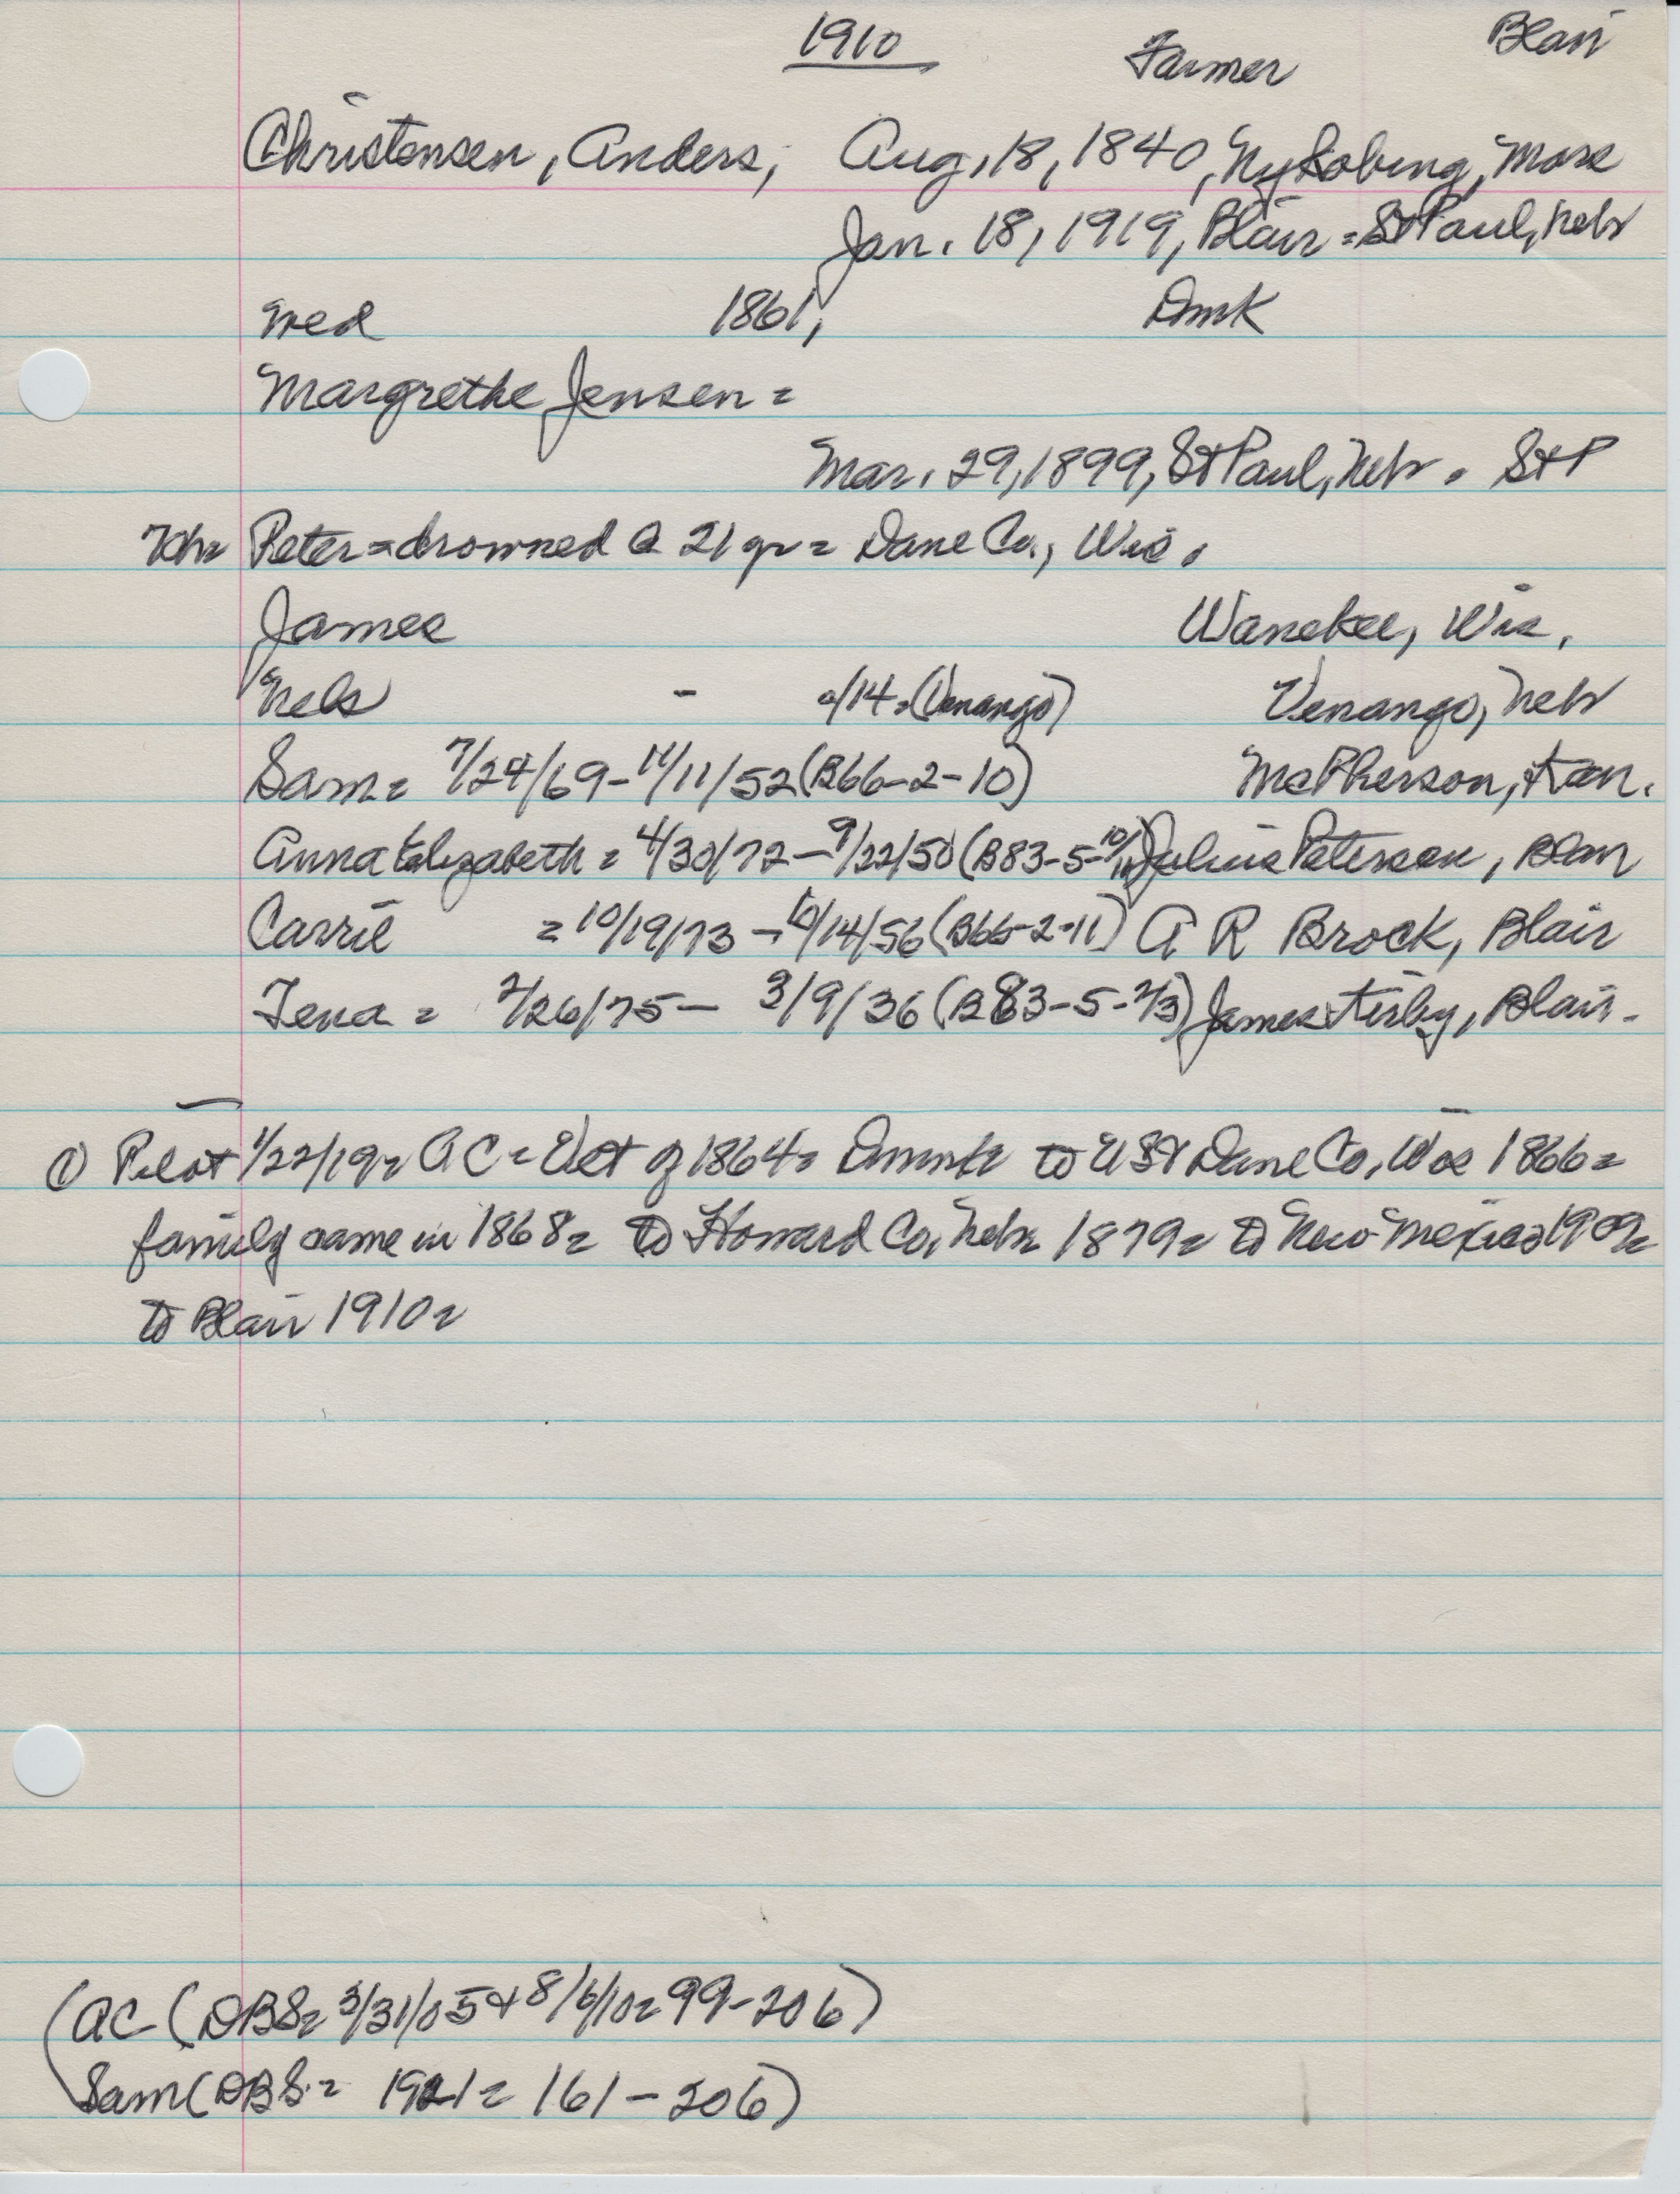 1910 Farmer Blair
Christensen, Anders, Aug. 18, 1840, Nykobing, Mors
Jan. 18, 1919, Blair = St Paul, Nebr
Wed 1861, Dmk
Margrethe Jensen =
Mar. 29, 1899, St Paul, Nebr. St P
7ch= Peter = drowned @ 21 yr = Dane Co., Wis.
James Wanekee, Wis.
Nels - /14 = (Venango) Venango, Nebr
Sam = 7/24/69 - 11/11/52 (B66-2-10) McPherson, Kan.
Anna Elizabeth = 4/30/72 - 9/22/50 (B83-5-10/11) Julius Petersen, Blair
Carrie = 10/19/73 - 10/14/56 (B66-2-11) A R Brock, Blair
Tena = 2/26/75 - 3/9/36 (B83-5-2/3) James Kirby, Blair -
① Pilot 1/22/19 = AC = Vet of 1864 = to US & Dane Co, Wis 1866 =
family came in 1868 = to Howard Co, Nebr 1879 = to New Mexico 1909 =
to Blair 1910 =
(AC (DBS = 3/31/05 + 8/6/10 = 99-206)
Sam (DBS = 1921 = 161-206)